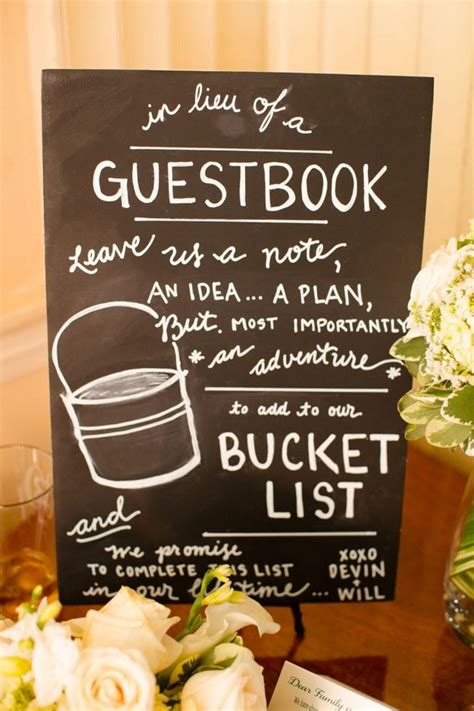 in lieu of a
GUESTBOOK
Leave us a note,
AN IDEA... A PLAN,
But, MOST IMPORTANTLY
*an adventure*
to add to our
BUCKET
LIST
and
We promise
TO COMPLETE THIS LIST
in our lifetime...
XOXO
DEVIN
+
WILL
Dear Family